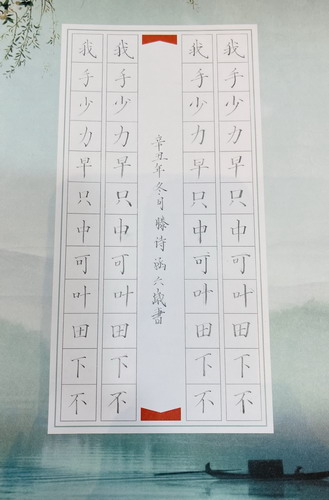 我手少力早只中可叶田下不
我手少力早只中可叶田下不
辛丑年冬月滕诗涵六岁書
我手少力早只中可叶田下不
我手少力早只中可叶田下不